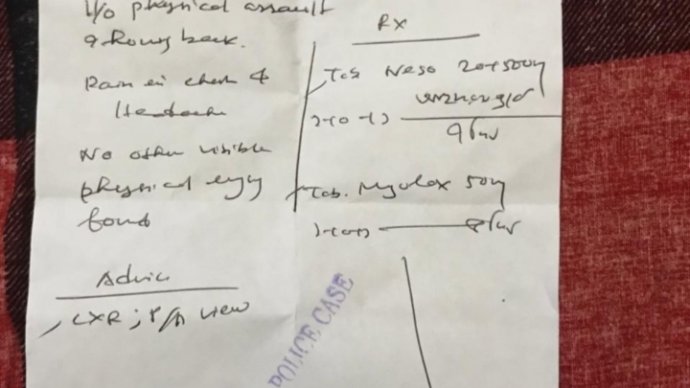 H/o physical assault
back.
Pain in chest &
Headache
No other visible
physical injury
found
Advice
CXR ; P/A view
Rx
Tab Neso 20+500mg
1+0+1
Tab. Myolax 50mg
1+0+1
POLICE CASE